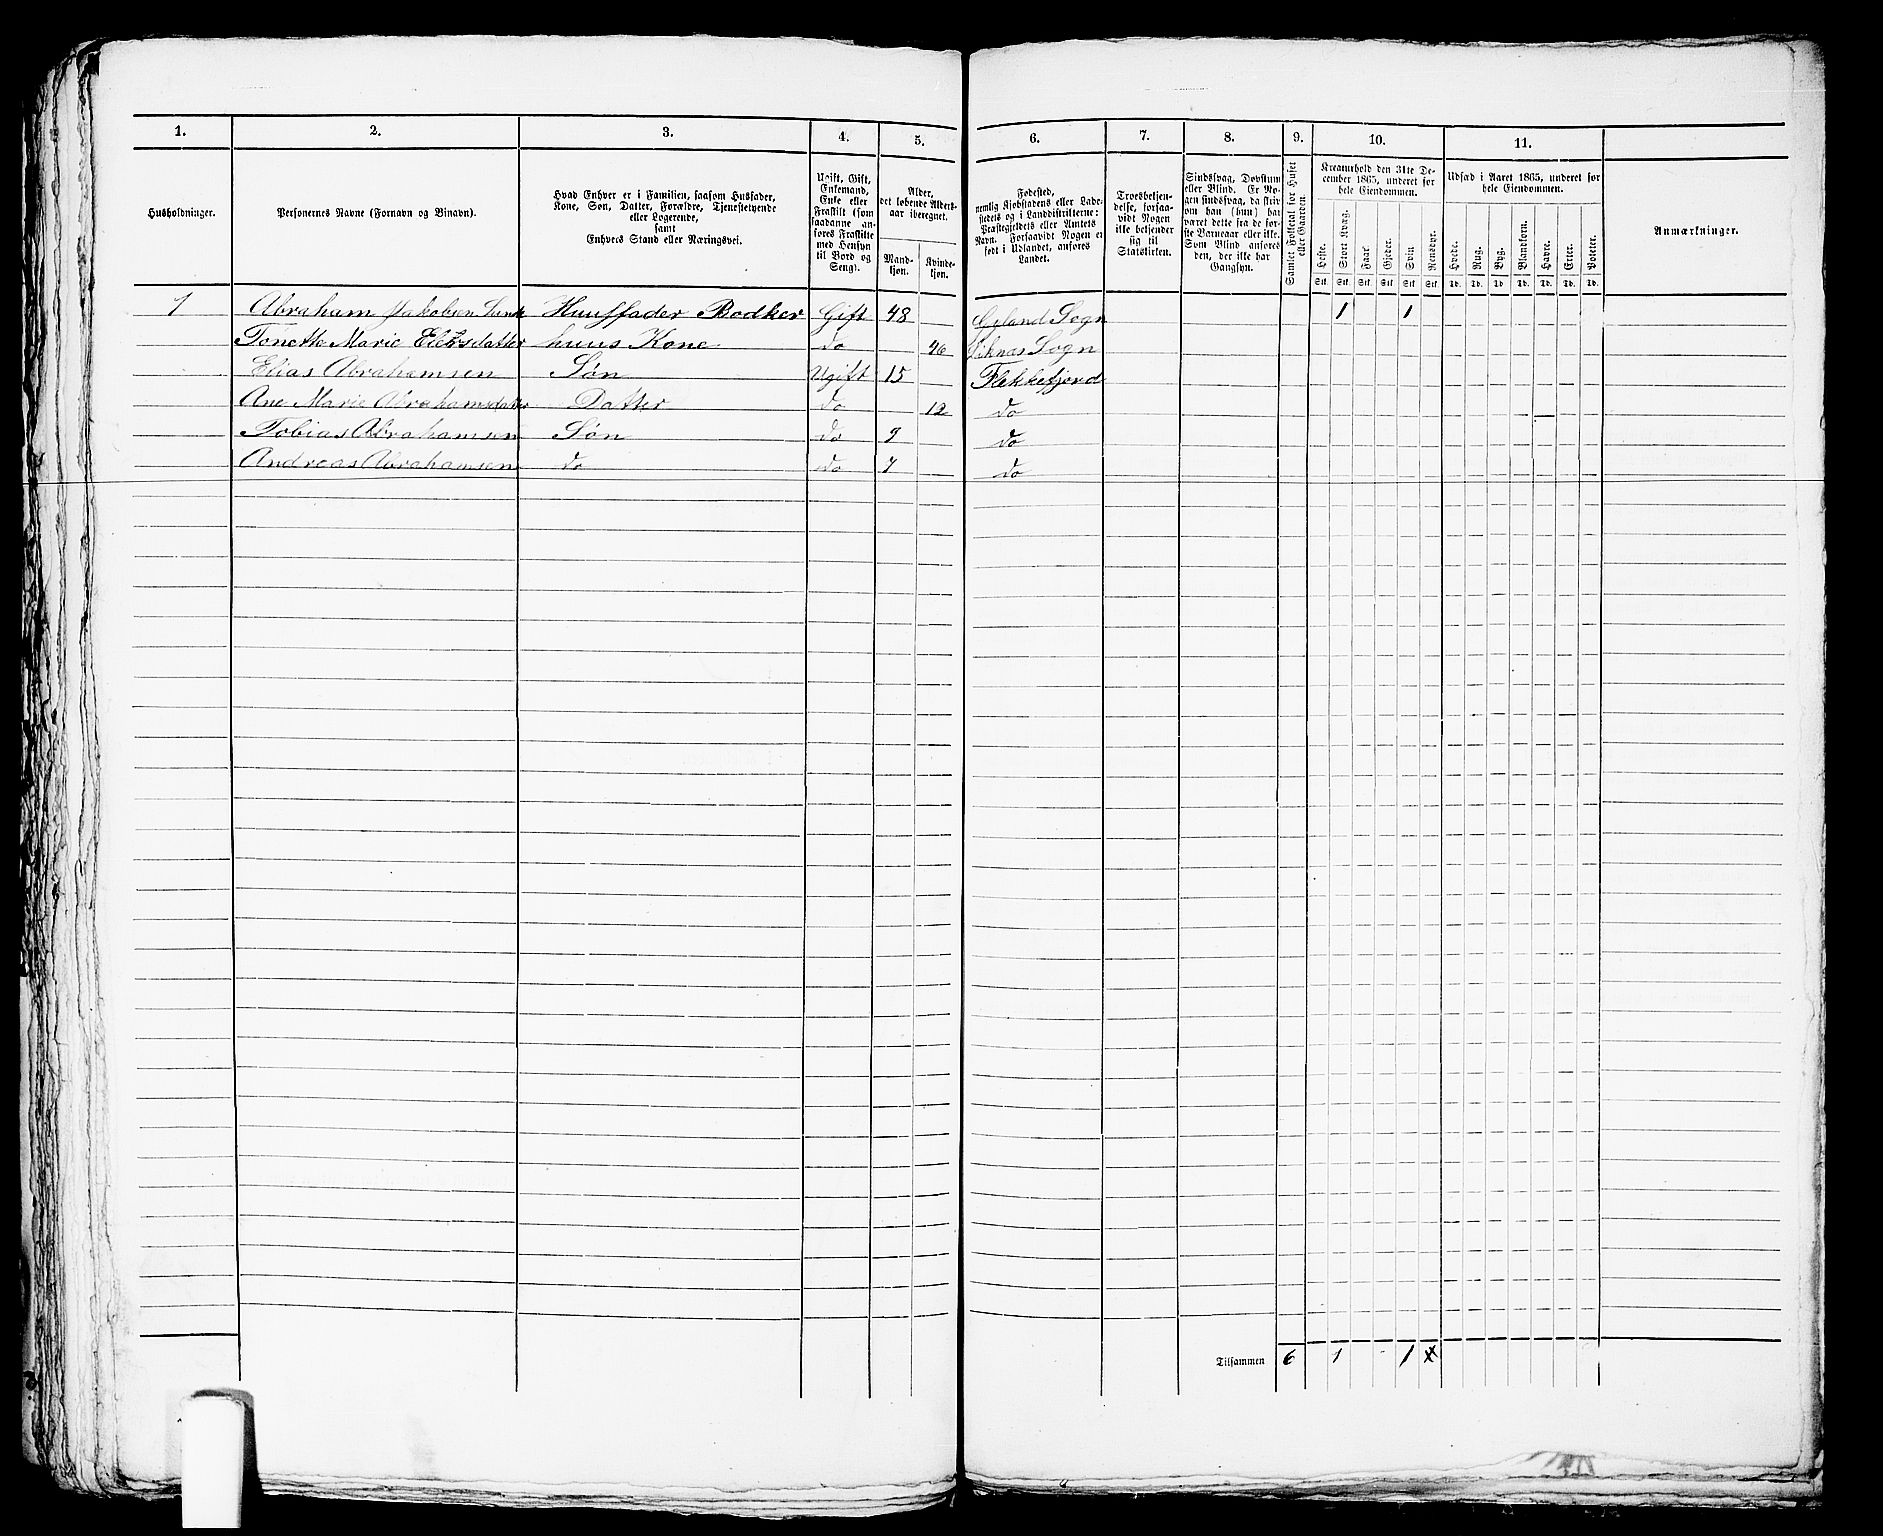 1. 2. 3. 4. 5. 6. 7. 8. 9. 10. 11.
Husholdninger.
Personernes Navne (Fornavn og Binavn).
Hvad Enhver er i Familien, saasom Husfader,
Kone, Søn, Datter, Forældre, Tjenestetyende
eller Logerende,
samt
Enhvers Stand eller Næringsvei.
Ugift, Gift,
Enkemand,
Enke eller
Fraskilt (som
saadanne an-
føres Fraskilte
med Hensyn
til Bord og
Seng).
Alder,
det løbende Alders-
aar iberegnet.
Mand-
kjøn.
Kvinde-
kjøn.
Fødested,
nemlig Kjøbstadens eller Lade-
stedets og i Landdistrikterne:
Præstegjeldets eller Amtets
Navn. Forsaavidt Nogen er
født i Udlandet, anføres
Landet.
Troesbekjen-
delse, forsaa-
vidt Nogen
ikke bekjender
sig til
Statskirken.
Sindssvag, Døvstum
eller Blind. Er No-
gen sindssvag, da skriv
om han (hun) har
været dette fra de før-
ste Barneaar eller ikke.
Som Blind anføres
den, der ikke har
Gangsyn.
Samlet Folketal for Huset
eller Gaarden.
Kreaturhold den 31te De-
cember 1865, underet for
hele Eiendommen.
Heste.
Stort Kvæg.
Faar.
Gjeder.
Svin
Rensdyr.
Udsæd i Aaret 1865, underet for
hele Eiendommen.
Hvede.
Rug.
Byg.
Blandkorn.
Havre.
Erter.
Poteter.
Anmærkninger.
Stk. Stk. Stk. Stk. Stk. Stk. Td. Td. Td. Td. Td. Td. Td.
1 Abraham Jakobsen Huusfader Bødker Gift 48 Gyland Sogn 1 1
Tonette Marie huus Kone do 46 Sogn
Elias Abrahamsen Søn Ugift 15 Flekkefjord
Ane Marie Abrahamsdatter Datter do 12 do
Tobias Abrahamsen Søn do 9 do
Andreas Abrahamsen do do 7 do
Tilsammen 6 1 1